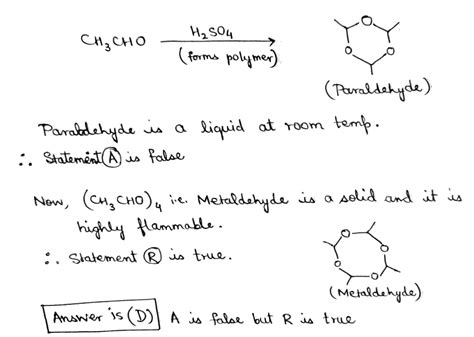 CH3CHO H2SO4 (forms polymer)
(Paraldehyde)
Paraldehyde is a liquid at room temp.
∴ Statement (A) is false
Now, (CH3CHO)4 i.e. Metaldehyde is a solid and it is
highly flammable.
∴ Statement (R) is true.
(Metaldehyde)
Answer is (D) A is false but R is true